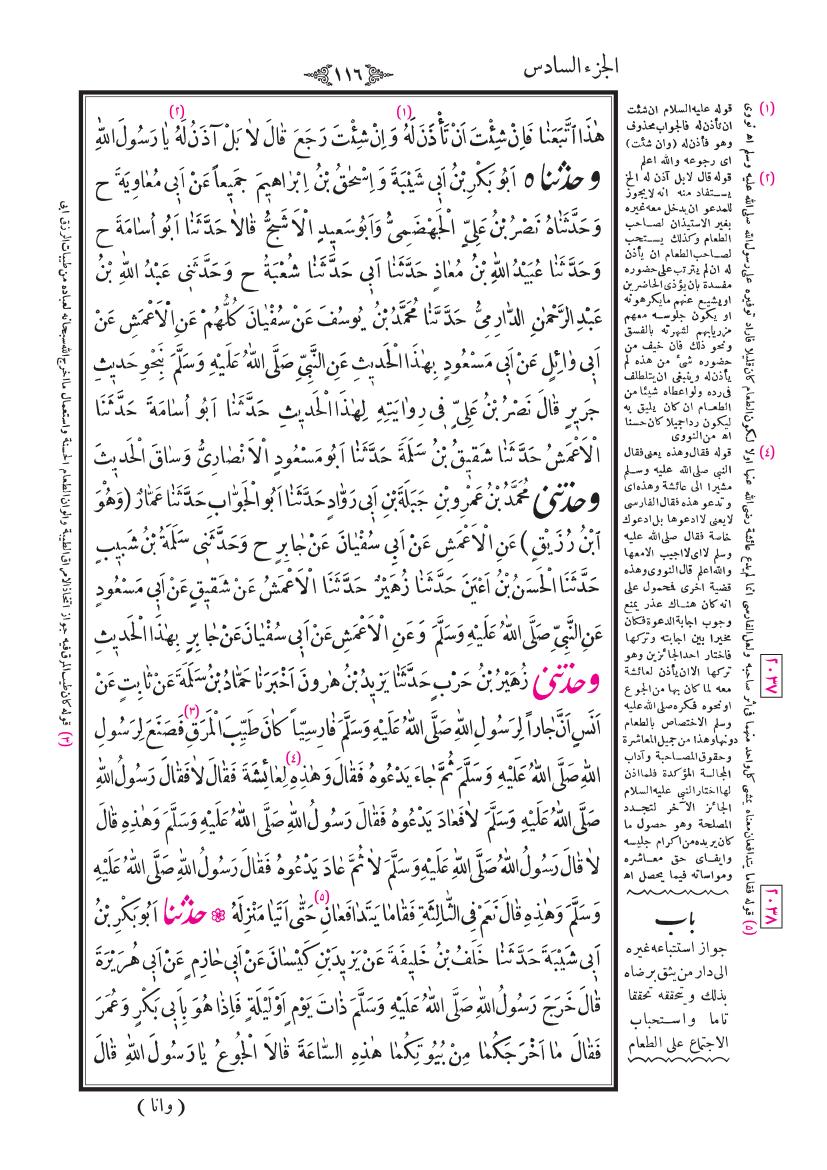 الجزء السادس
١١٦
هٰذَا ٱتَّبَعَنَا فَاِنْ شِئْتَ اَنْ تَأْذَنَ لَهُ (١) وَاِنْ شِئْتَ رَجَعَ قَالَ لَا بَلْ آذَنُ لَهُ (٢) يَا رَسُولَ اللّٰهِ
وحدثنا ٥ اَبُو بَكْرِ بْنُ اَبِي شَيْبَةَ وَاِسْحٰقُ بْنُ اِبْرَاهِيمَ جَمِيعاً عَنْ اَبِي مُعَاوِيَةَ ح
وَحَدَّثَنَاهُ نَصْرُ بْنُ عَلِيٍّ الْجَهْضَمِيُّ وَاَبُو سَعِيدٍ الْاَشَجُّ قَالَا حَدَّثَنَا اَبُو اُسَامَةَ ح
وَحَدَّثَنَا عُبَيْدُ اللّٰهِ بْنُ مُعَاذٍ حَدَّثَنَا اَبِي حَدَّثَنَا شُعْبَةُ ح وَحَدَّثَنِي عَبْدُ اللّٰهِ بْنُ
عَبْدِ الرَّحْمٰنِ الدَّارِمِيُّ حَدَّثَنَا مُحَمَّدُ بْنُ يُوسُفَ عَنْ سُفْيَانَ كُلُّهُمْ عَنِ الْاَعْمَشِ عَنْ
اَبِي وَائِلٍ عَنْ اَبِي مَسْعُودٍ بِهٰذَا الْحَدِيثِ عَنِ النَّبِيِّ صَلَّى اللّٰهُ عَلَيْهِ وَسَلَّمَ بِنَحْوِ حَدِيثِ
جَرِيرٍ قَالَ نَصْرُ بْنُ عَلِيٍّ فِي رِوَايَتِهِ لِهٰذَا الْحَدِيثِ حَدَّثَنَا اَبُو اُسَامَةَ حَدَّثَنَا
الْاَعْمَشُ حَدَّثَنَا شَقِيقُ بْنُ سَلَمَةَ حَدَّثَنَا اَبُو مَسْعُودٍ الْاَنْصَارِيُّ وَسَاقَ الْحَدِيثَ
وحدثني مُحَمَّدُ بْنُ عَمْرِو بْنِ جَبَلَةَ بْنِ اَبِي رَوَّادٍ حَدَّثَنَا اَبُو الْجَوَّابِ حَدَّثَنَا عَمَّارٌ (وَهُوَ
ابْنُ رُزَيْقٍ) عَنِ الْاَعْمَشِ عَنْ اَبِي سُفْيَانَ عَنْ جَابِرٍ ح وَحَدَّثَنِي سَلَمَةُ بْنُ شَبِيبٍ
حَدَّثَنَا الْحَسَنُ بْنُ اَعْيَنَ حَدَّثَنَا زُهَيْرٌ حَدَّثَنَا الْاَعْمَشُ عَنْ شَقِيقٍ عَنْ اَبِي مَسْعُودٍ
عَنِ النَّبِيِّ صَلَّى اللّٰهُ عَلَيْهِ وَسَلَّمَ وَعَنِ الْاَعْمَشِ عَنْ اَبِي سُفْيَانَ عَنْ جَابِرٍ بِهٰذَا الْحَدِيثِ
وحدثني زُهَيْرُ بْنُ حَرْبٍ حَدَّثَنَا يَزِيدُ بْنُ هٰرُونَ اَخْبَرَنَا حَمَّادُ بْنُ سَلَمَةَ عَنْ ثَابِتٍ عَنْ
اَنَسٍ اَنَّ جَاراً لِرَسُولِ اللّٰهِ صَلَّى اللّٰهُ عَلَيْهِ وَسَلَّمَ فَارِسِيّاً كَانَ طَيِّبَ الْمَرَقِ (٣) فَصَنَعَ لِرَسُولِ
اللّٰهِ صَلَّى اللّٰهُ عَلَيْهِ وَسَلَّمَ ثُمَّ جَاءَ يَدْعُوهُ فَقَالَ وَهٰذِهِ (٤) لِعَائِشَةَ فَقَالَ لَا فَقَالَ رَسُولُ اللّٰهِ
صَلَّى اللّٰهُ عَلَيْهِ وَسَلَّمَ لَا فَعَادَ يَدْعُوهُ فَقَالَ رَسُولُ اللّٰهِ صَلَّى اللّٰهُ عَلَيْهِ وَسَلَّمَ وَهٰذِهِ قَالَ
لَا قَالَ رَسُولُ اللّٰهِ صَلَّى اللّٰهُ عَلَيْهِ وَسَلَّمَ لَا ثُمَّ عَادَ يَدْعُوهُ فَقَالَ رَسُولُ اللّٰهِ صَلَّى اللّٰهُ عَلَيْهِ
وَسَلَّمَ وَهٰذِهِ قَالَ نَعَمْ فِي الثَّالِثَةِ فَقَامَا يَتَدَافَعَانِ (٥) حَتَّى اَتَيَا مَنْزِلَهُ ❁ حدثنا اَبُو بَكْرِ بْنُ
اَبِي شَيْبَةَ حَدَّثَنَا خَلَفُ بْنُ خَلِيفَةَ عَنْ يَزِيدَ بْنِ كَيْسَانَ عَنْ اَبِي حَازِمٍ عَنْ اَبِي هُرَيْرَةَ
قَالَ خَرَجَ رَسُولُ اللّٰهِ صَلَّى اللّٰهُ عَلَيْهِ وَسَلَّمَ ذَاتَ يَوْمٍ اَوْ لَيْلَةٍ فَاِذَا هُوَ بِاَبِي بَكْرٍ وَعُمَرَ
فَقَالَ مَا اَخْرَجَكُمَا مِنْ بُيُوتِكُمَا هٰذِهِ السَّاعَةَ قَالَا الْجُوعُ يَا رَسُولَ اللّٰهِ قَالَ
( وانا )
(١) قوله عليه السلام ان شئت
ان تأذن له فالجواب محذوف
وهو فأذن له (وان شئت)
اى رجوعه والله اعلم
(٢) قوله قال لا بل آذن له الخ
يستفاد منه انه لا يجوز
للمدعو ان يدخل معه غيره
بغير الاستيذان لصاحب
الطعام وكذلك يستحب
لصاحب الطعام ان يأذن
له ان لم يترتب على حضوره
مفسدة بان يؤذى الحاضرين
او يشيع عنهم ما يكرهونه
او يكون جلوسه معهم
مزريا بهم لشهرته بالفسق
ونحو ذلك فان خيف من
حضوره شئ من هذه لم
يأذن له وينبغى ان يتلطف
فى رده ولو اعطاه شيئا من
الطعام ان كان يليق به
ليكون ردا جميلا كان حسنا
اه من النووى
(٤) قوله فقال وهذه يعنى فقال
النبى صلى الله عليه وسلم
مشيرا الى عائشة وهذه اى
وتدعو هذه فقال الفارسى
لا يعنى لا ادعوها بل ادعوك
خاصة فقال صلى الله عليه
وسلم لا اى لا اجيب الا معها
والله اعلم قال النووى وهذه
قضية اخرى فمحمول على
انه كان هناك عذر يمنع
وجوب اجابة الدعوة فكان
مخيرا بين اجابته وتركها
فاختار احد الجائزين وهو
تركها الا ان يأذن لعائشة
معه لما كان بها من الجوع
او نحوه فكره صلى الله عليه
وسلم الاختصاص بالطعام
دونها وهذا من جميل المعاشرة
وحقوق المصاحبة وآداب
المجالسة المؤكدة فلما اذن
لها اختار النبى عليه السلام
الجائز الآخر لتجدد
المصلحة وهو حصول ما
كان يريده من اكرام جليسه
وايفاء حق معاشره
ومواساته فيما يحصل اه
باب
جواز استتباعه غيره
الى دار من يثق برضاه
بذلك وبتحققه تحققا
تاما واستحباب
الاجتماع على الطعام
٢٠٣٧
٢٠٣٨
(٣) قوله كان طيب المرق فيه جواز اتخاذ الامراق الطيبة والوان الطعام الحسنة واستعمال ما اخرج الله سبحانه لعباده من طيبات الرزق ابى
(٥) قوله فقاما يتدافعان معناه يمشى كل واحد منهما فى اثر صاحبه ولعل الفارسى انما لم يدع عائشة رضى الله عنها اولا لكون الطعام كان قليلا فاراد توفيره على رسول الله صلى الله عليه وسلم اه نووى